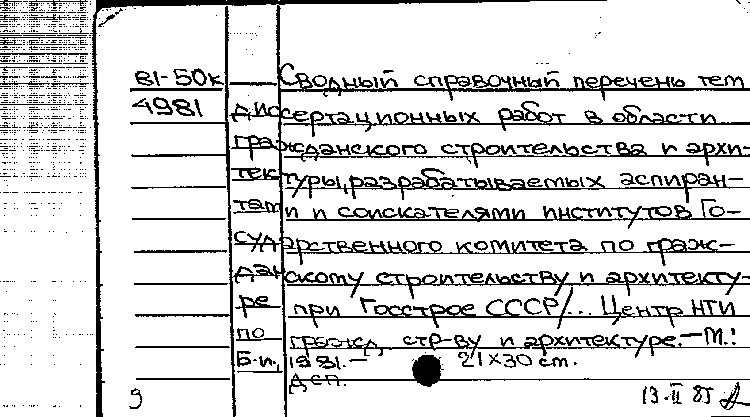 81-50к Сводный справочный перечень тем
4981 диссертационных работ в области
гражданского строительства и архи-
тектуры, разрабатываемых аспиран-
тами и соискателями институтов Го-
сударственного комитета по граж-
данскому строительству и архитекту-
ре при Госстрое СССР/... Центр НТИ
по гражд. стр-ву и архитектуре.-М.:
Б.и., 1981.- 21х30 см.
Дсп.
9 13.II 85